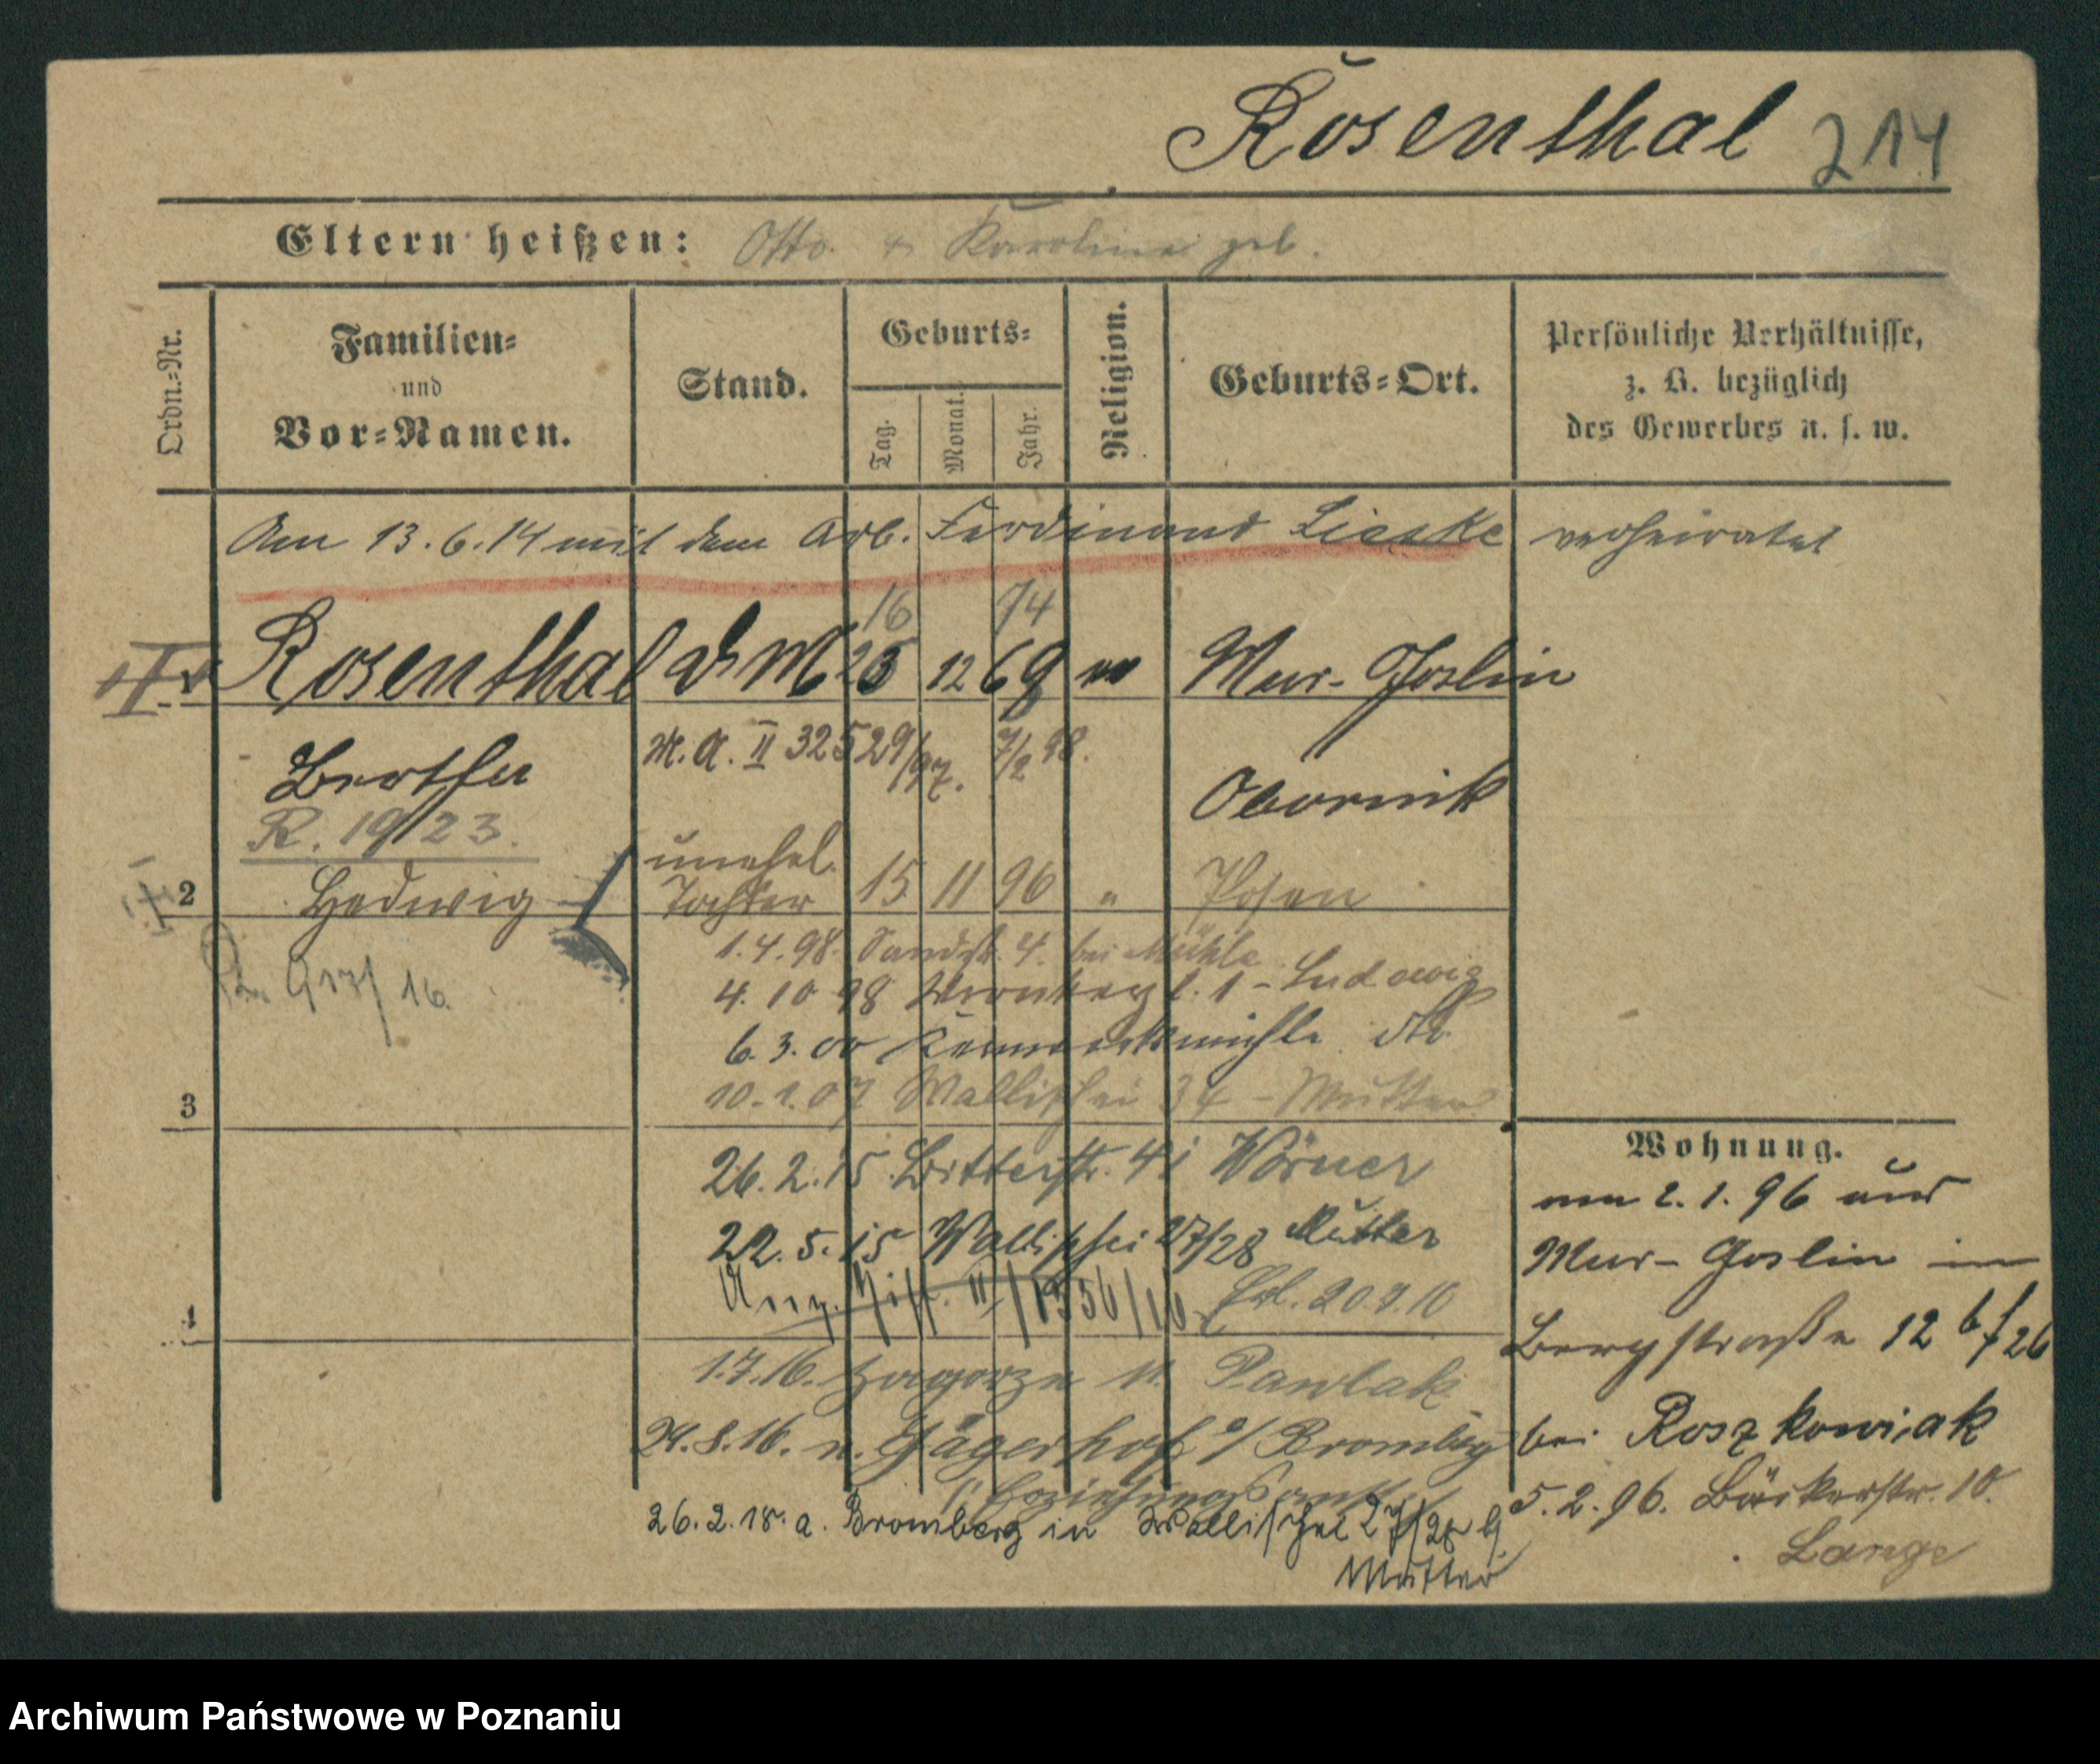 Rosenthal 214
Eltern heißen: Otto. & Karoline geb.
Ordn.-Nr.
Familien-
und
Vor-Namen.
Stand.
Geburts-
Tag.
Monat.
Jahr.
Religion.
Geburts-Ort.
Persönliche Verhältnisse,
z. B. bezüglich
des Gewerbes u. s. w.
Am 13.6.14 mit dem Arb. Ferdinand Lieske verheiratet
16 74
Rosenthal 25 12 69 Mur-Goslin
M.A. II 325 29/97. 7/2 98.
Bertha Obornik
R. 19/23.
unehel.
2 Hedwig Tochter 15 11 96 " Posen
1.4.98. Sandstr. 4. bei Mühle
4. 10 98 Wronkerpl. 1 - Ludwig
16.
6. 3. 00
10.1.07 Wallischei 34 - Mutter
3
26.2.15. Bitterstr. 41 Wörner
22.5.15 Wallischei 27/28 Mutter
4
1.7.16. Zagorze 11. Pawlak
24.8.16. n. Jägerhof b/ Bromberg
26.2.18. a. Bromberg in Wallischei 27/28 b/
Mutter
Wohnung.
am 2.1.96 aus
Mur-Goslin in
Bergstraße 12 b f 26
bei Roszkowiak
5.2.96. Bäckerstr. 10.
Lange
Archiwum Państwowe w Poznaniu